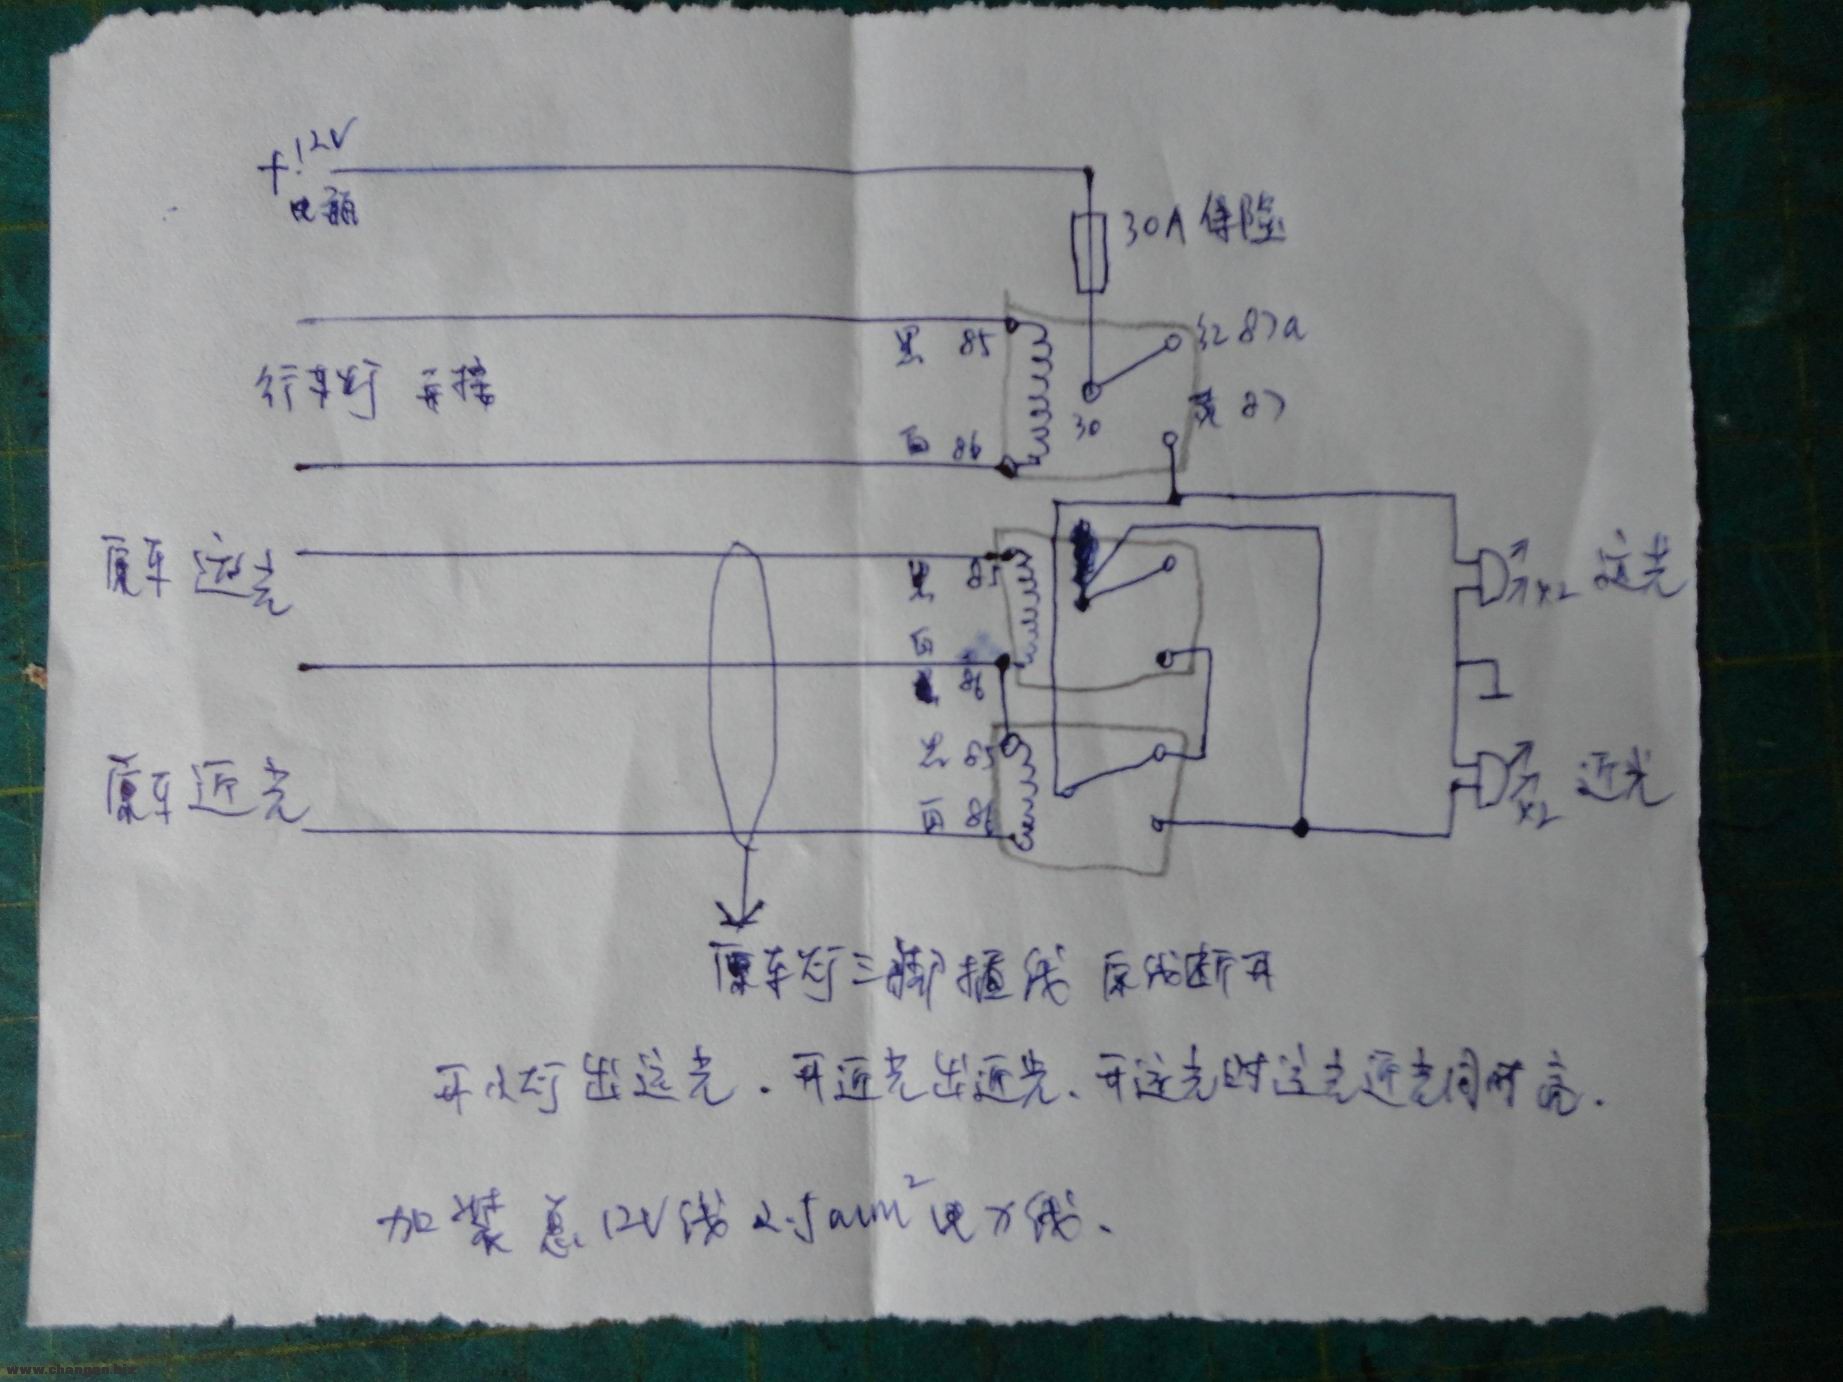 +12V
电瓶
30A 保险
黑 85
红 87a
行车灯 并接
30
黄 87
白 86
原车 远光
黑 85
x2 远光
白
86
黑 85
原车近光
白 86
x2 近光
原车灯三脚插线 原线断开
开小灯出远光. 开近光出近光、开远光时远光近光同时亮.
加装总12V线 2.5mm² 电力线、
www.changan.biz